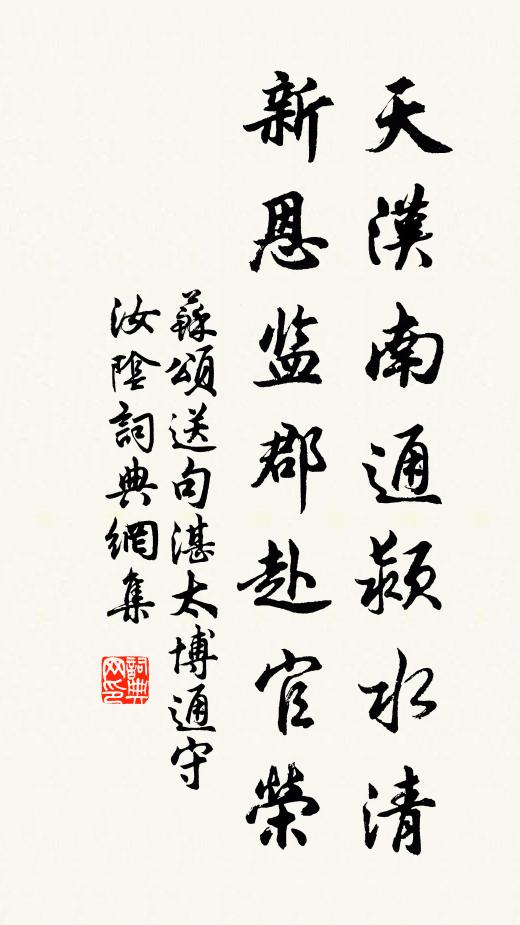 天漢南通潁水清
新恩監郡赴官榮
蘇頌送句湛太博通守
汝陰詞典網集
詞典網印